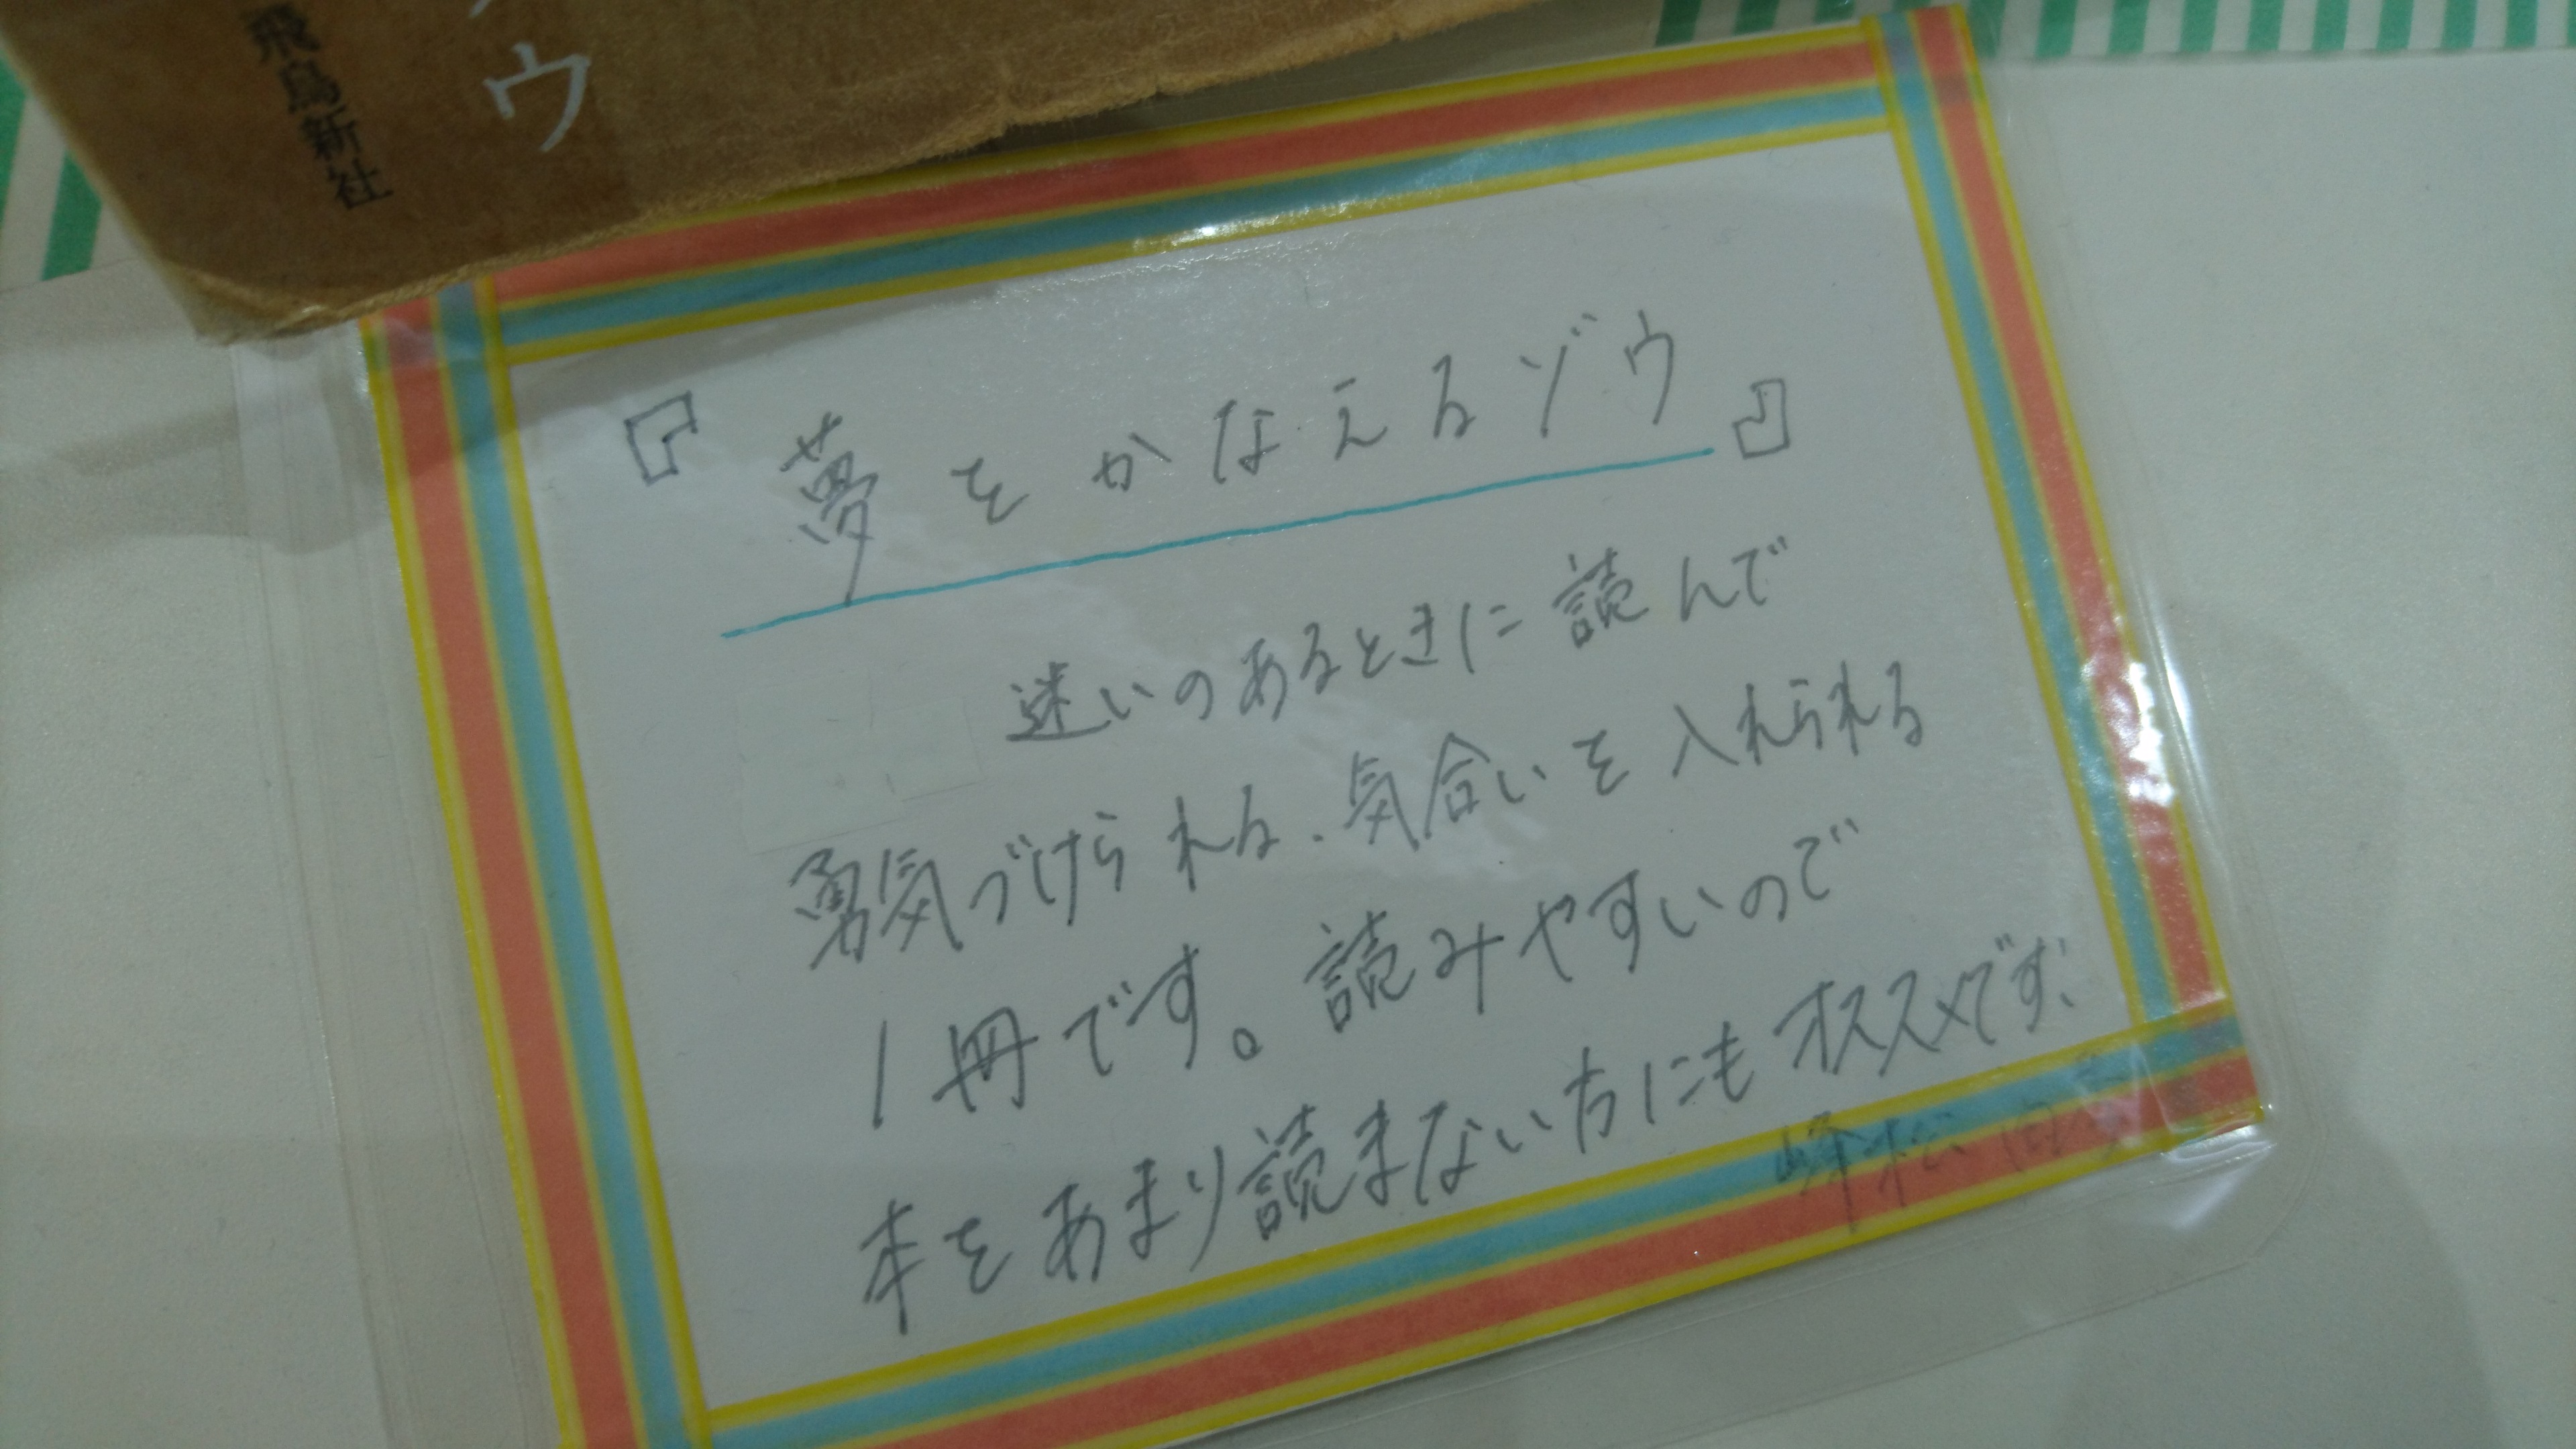 ウ
飛鳥新社
『夢をかなえるゾウ』
迷いのあるときに読んで
勇気づけられる、気合いを入れられる
1冊です。読みやすいので
本をあまり読まない方にもオススメです。
峰松